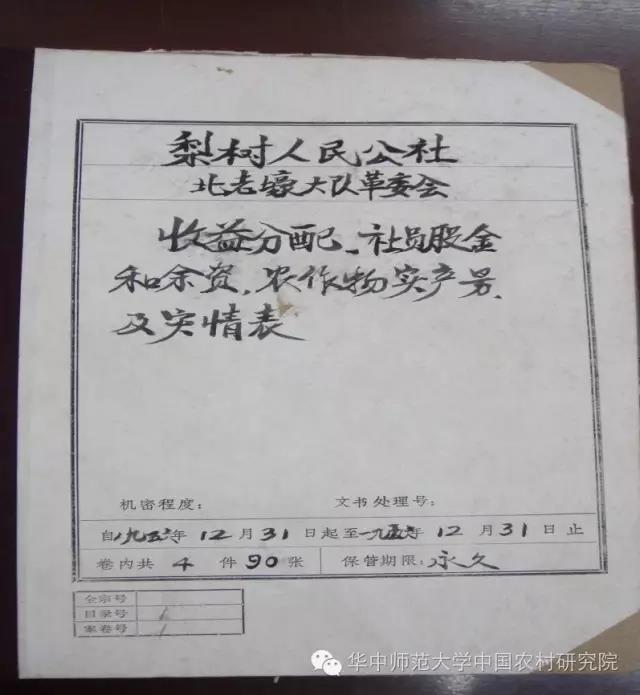 梨树人民公社
北老壕大队革委会
收益分配、社员股金
和余资、农作物实产量、
及实情表
机密程度： 文书处理号：
自一九五六年12月31日起至一九五六年12月31日止
卷内共4件90张 保管期限：永久
全宗号
目录号 1
案卷号 1
华中师范大学中国农村研究院